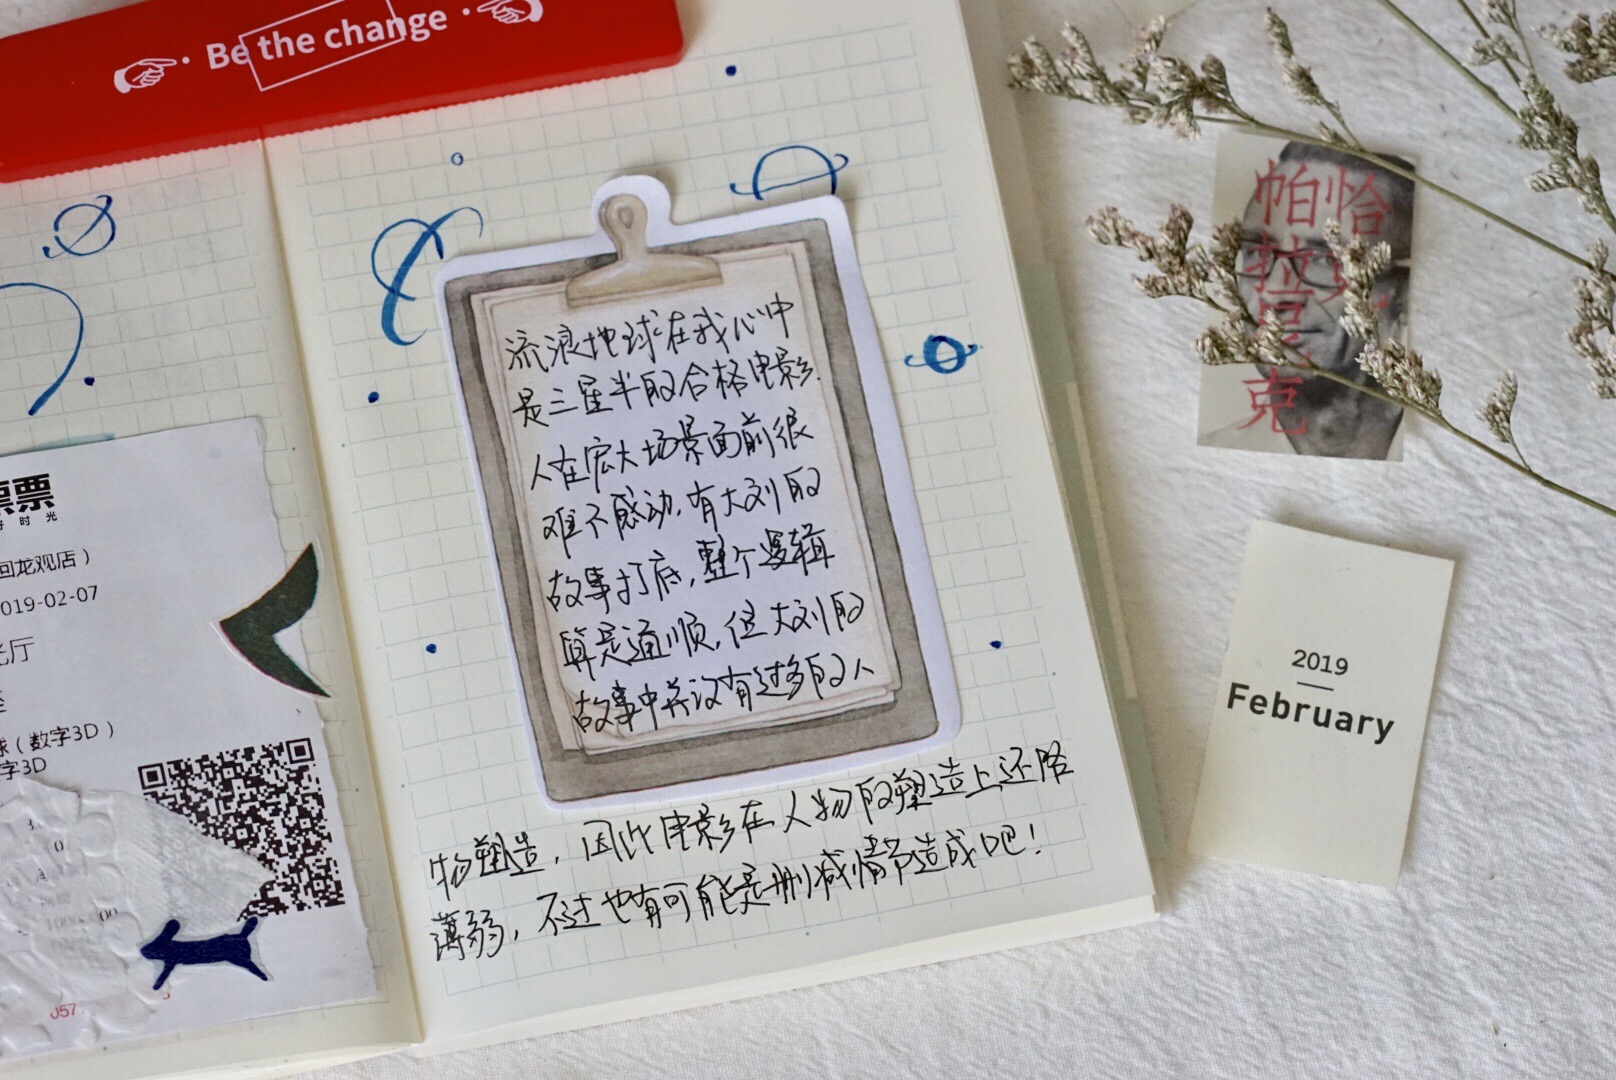 Be the change
票票
好时光
回龙观店）
019-02-07
光厅
球（数字3D）
字3D
057.
流浪地球在我心中
是三星半的合格电影.
人在宏大场景面前很
难不感动.有大刘的
故事打底,整个逻辑
算是通顺,但大刘的
故事中并没有过多的人
物塑造,因此电影在人物的塑造上还略
薄弱,不过也有可能是删减情节造成吧!
恰
帕拉尼克
2019
February